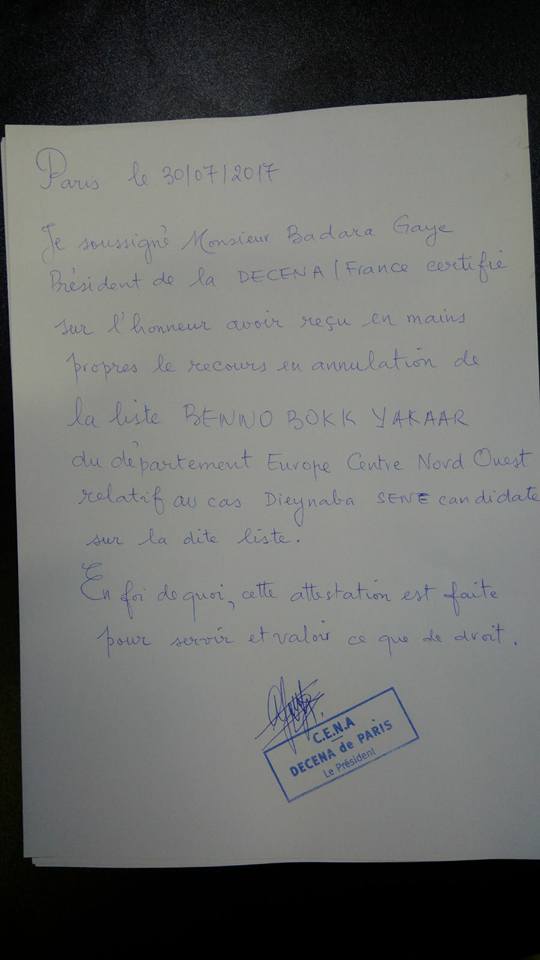 Paris le 30/07/2017
Je soussigné Monsieur Badara Gaye
Président de la DECENA/France certifie
sur l'honneur avoir reçu en mains
propres le recours en annulation de
la liste BENNO BOKK YAKAAR
du département Europe Centre Nord Ouest
relatif au cas Dieynaba SENE candidate
sur la dite liste.
En foi de quoi, cette attestation est faite
pour servir et valoir ce que de droit.
C.E.N.A
DECENA de PARIS
Le Président